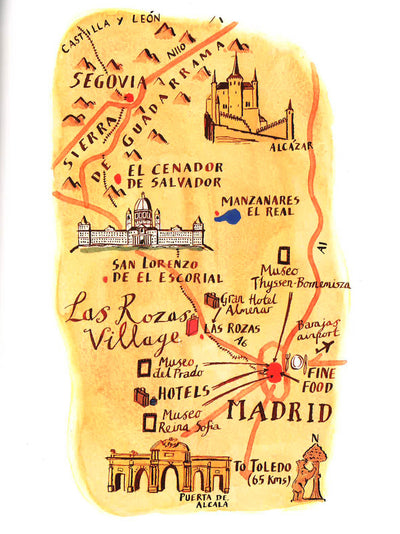 CASTILLA Y LEÓN
N110
SEGOVIA
SIERRA
DE GUADARRAMA
ALCÁZAR
EL CENADOR
DE SALVADOR
MANZANARES
EL REAL
A1
SAN LORENZO
DE EL ESCORIAL
MUSEO
Thyssen-Bornemisza
Gran Hotel
Almenar
Las Rozas
Village
LAS ROZAS
A6
Barajas
airport
Museo
del Prado
FINE
FOOD
HOTELS
MADRID
Museo
Reina Sofia
N
TO TOLEDO
(65 KMS)
PUERTA DE
ALCALÁ